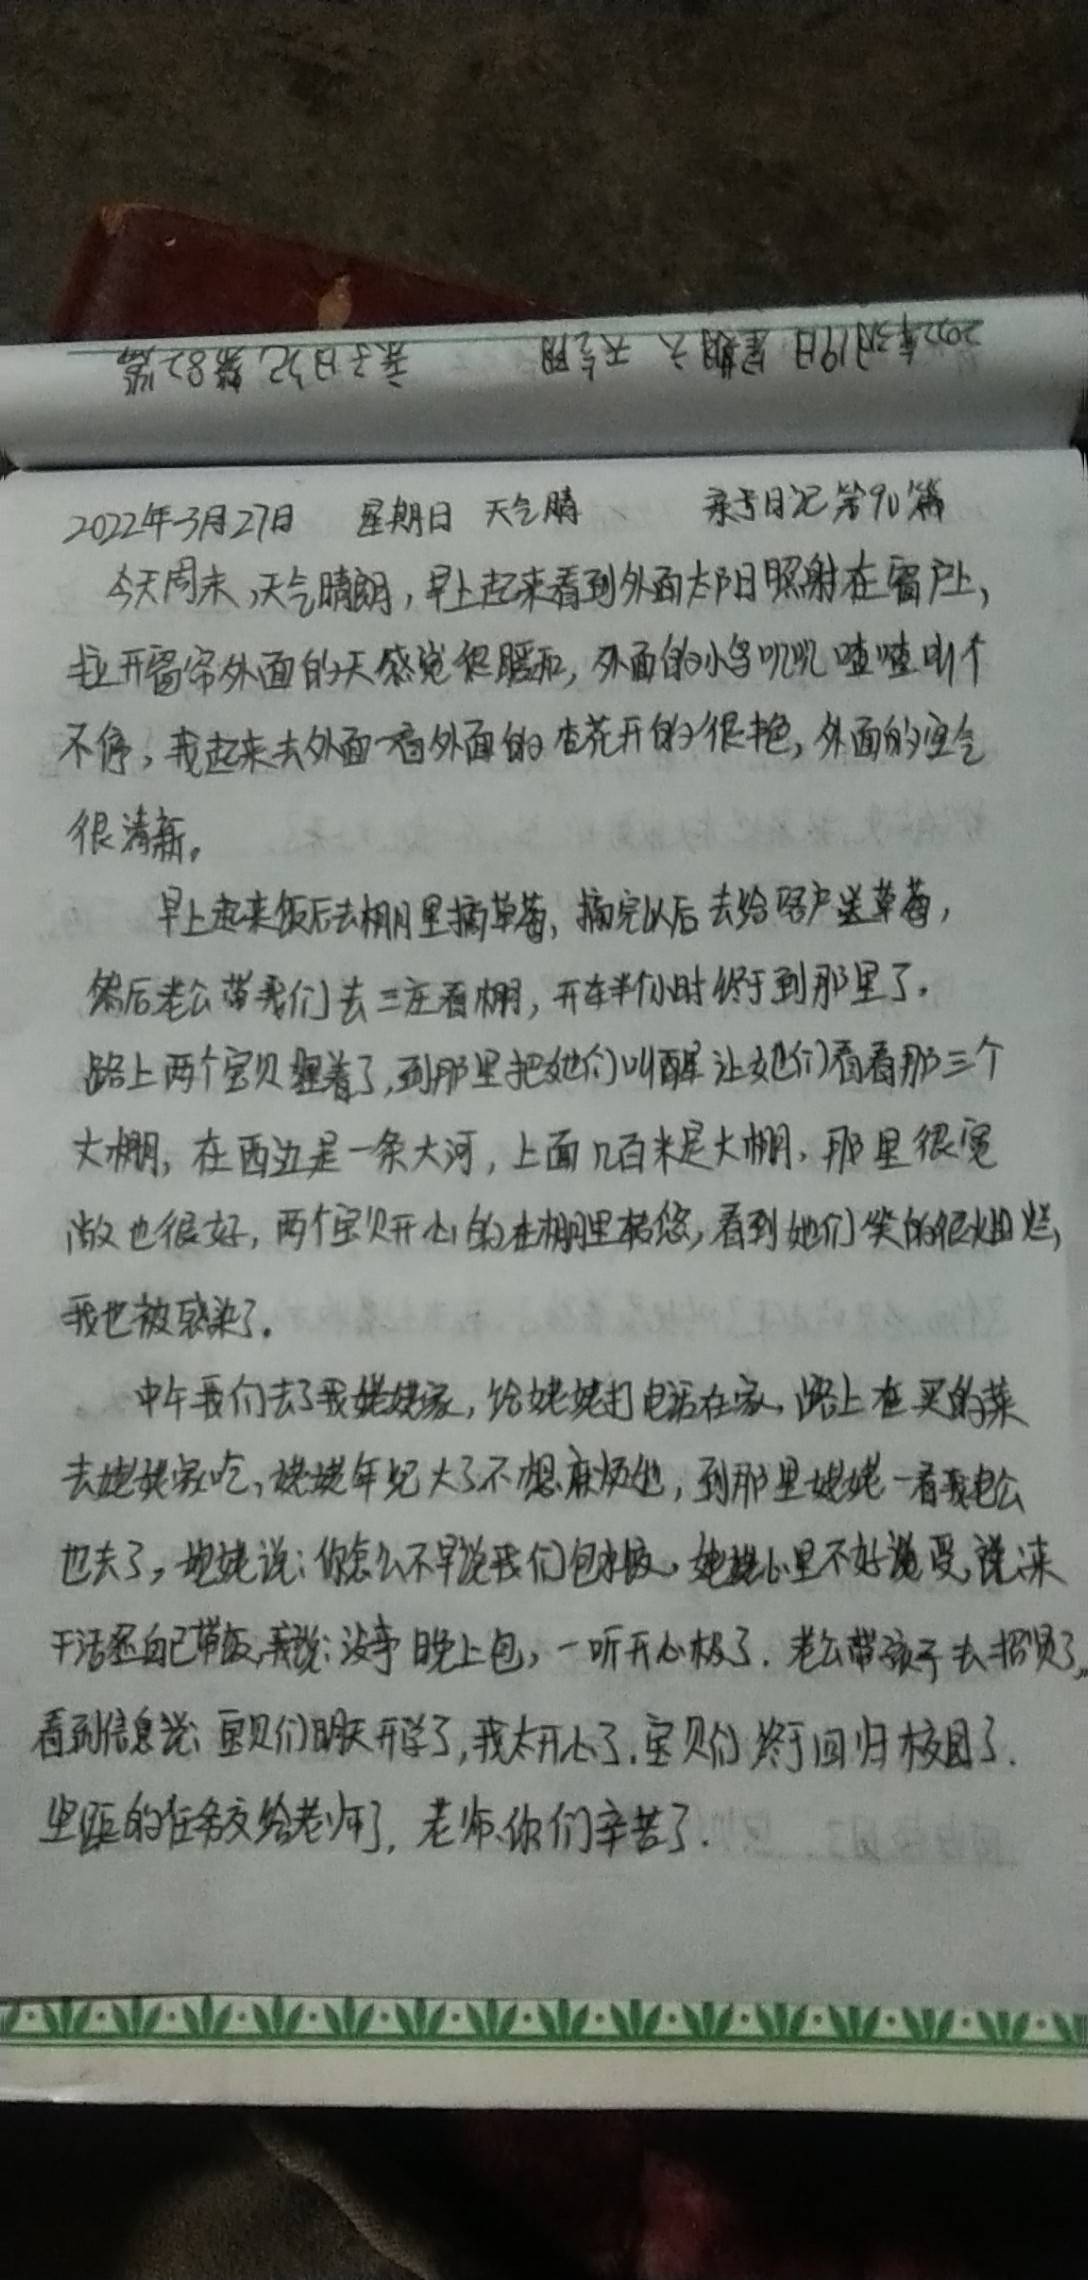 2022年3月19日 星期六 天气阴 亲子日记 第82篇
2022年3月27日 星期日 天气晴 亲子日记第90篇
今天周末,天气晴朗,早上起来看到外面太阳照射在窗户上,
拉开窗帘外面的天感觉很暖和,外面的小鸟叽叽喳喳叫个
不停,我起来去外面一看外面的杏花开的很艳,外面的空气
很清新。
早上起来饭后去棚里摘草莓,摘完以后去给客户送草莓,
然后老公带我们去三庄看棚,开车半个小时终于到那里了.
路上两个宝贝睡着了,到那里把她们叫醒让她们看看那三个
大棚,在西边是一条大河,上面几百米是大棚,那里很宽
敞也很好,两个宝贝开心的在棚里转悠,看到她们笑的很灿烂,
我也被感染了.
中午我们去了我姥姥家,给姥姥打电话在家,路上在买的菜
去姥姥家吃,姥姥年纪大了不想麻烦她,到那里姥姥一看我老公
也去了,姥姥说:你怎么不早说我们包水饺,姥姥心里不好受,说:来
干活还自己带饭,我说:没事晚上包,一听开心极了.老公带孩子去招贤了,
看到信息说:宝贝们明天开学了,我太开心了.宝贝们终于回归校园了.
的任务交给老师了,老师你们辛苦了.